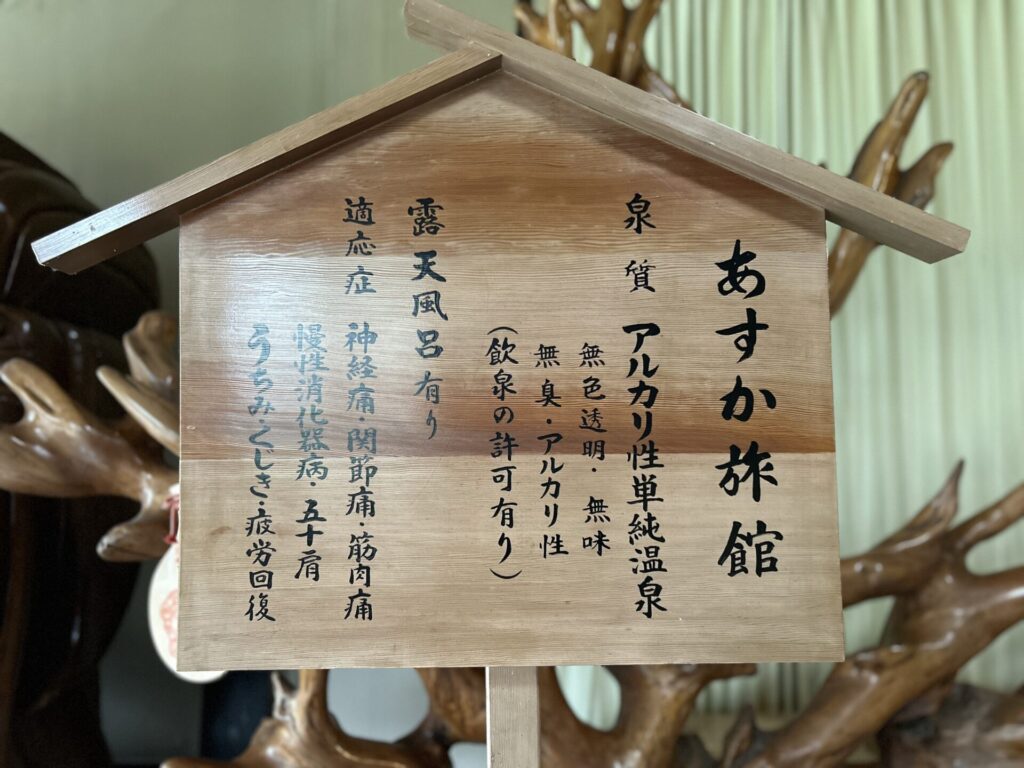 あすか旅館
泉質 アルカリ性単純温泉
無色透明・無味
無臭・アルカリ性
(飲泉の許可有り)
露天風呂有り
適応症 神経痛・関節痛・筋肉痛
慢性消化器病・五十肩
うちみ・くじき・疲労回復